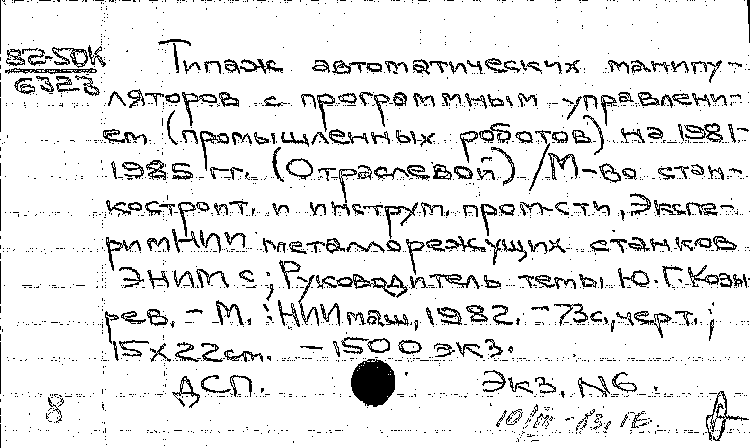 82-50К
6323
Типаж автоматических манипу-
ляторов с программным управлени-
ем (промышленных роботов) на 1981-
1985 гг. (Отраслевой) / М-во стан-
костроит. и инструм. пром-сти, Экспе-
римНИИ металлорежущих станков
ЭНИМС; Руководитель темы Ю.Г. Козы-
рев. - М. : НИИмаш, 1982. - 73с, черт.;
15х22см. - 1500 экз.
ДСП. Экз. N6.
8 10/III-83, ГЕ.